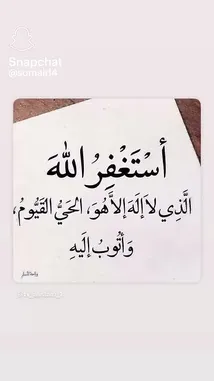 Snapchat
أَسْتَغْفِرُ اللهَ
الَّذِي لاَ إِلَهَ إِلاَّ هُوَ، الحَيُّ القَيُّومُ،
وَأَتُوبُ إِلَيهِ